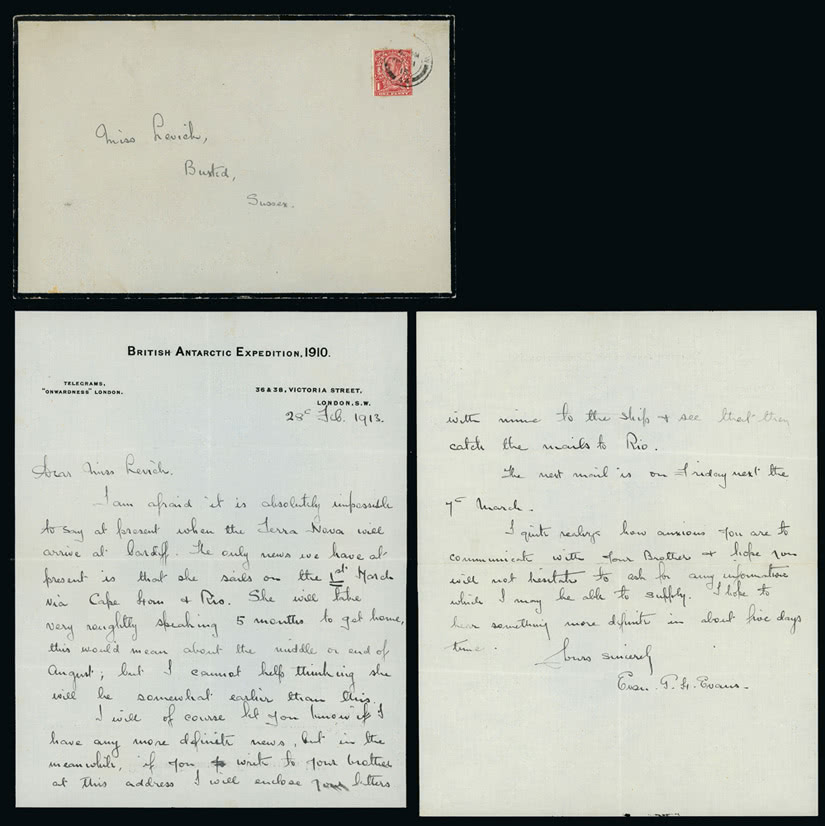 Miss Levick,
Buxted,
Sussex.
BRITISH ANTARCTIC EXPEDITION, 1910.
TELEGRAMS,
"ONWARDNESS" LONDON.
36 & 38, VICTORIA STREET,
LONDON, S.W.
28th Feb. 1913.
Dear Miss Levick.
I am afraid it is absolutely impossible
to say at present when the Terra Nova will
arrive at Cardiff. The only news we have at
present is that she sails on the 1st March
via Cape Horn & Rio. She will take
very roughtly speaking 5 months to get home,
this would mean about the middle or end of
August; but I cannot help thinking she
will be somewhat earlier than this.
I will of course let you know if I
have any more definite news, but in the
meanwhile, if you write to your brother
at this address I will enclose your letters
with mine to the ship & see that they
catch the mails to Rio.
The next mail is on Friday next the
7th March.
I quite realize how anxious you are to
communicate with your Brother & hope you
will not hesitate to ask for any information
which I may be able to supply. I hope to
hear something more definite in about five days
time.
Yours sincerely
Evans.